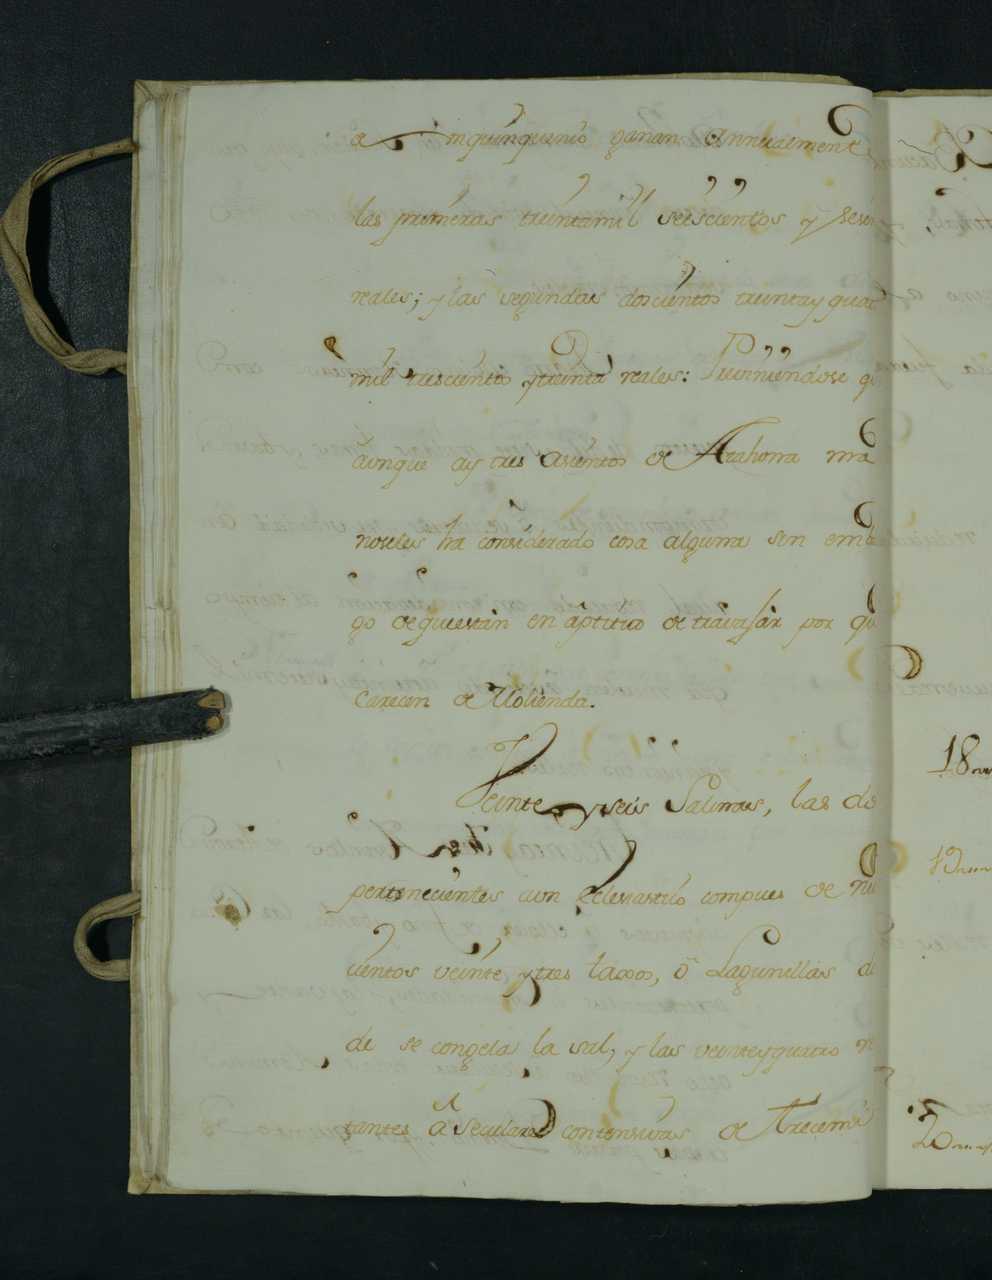 de quinquenio ganan Annualment
las primeras treintamil seiscientos y sesen
reales; y las segundas doscientos treinta y quat
mil trescientos y treinta reales:
aunque ay tres asientos de Atahona ma
noseles ha considerado cosa alguna sin emb
go de que estan en aptitud de travajar por q
Carecen de Molienda.
Veinte y seis Salinas, las do
pertenecientes aun Eclesiastico compues de n
cientos veinte y tres lacos, ô Lagunillas d
de se congela la sal, y las veinte y quatro r
tantes â Seculares contensivas de Trecemi
18
19
20